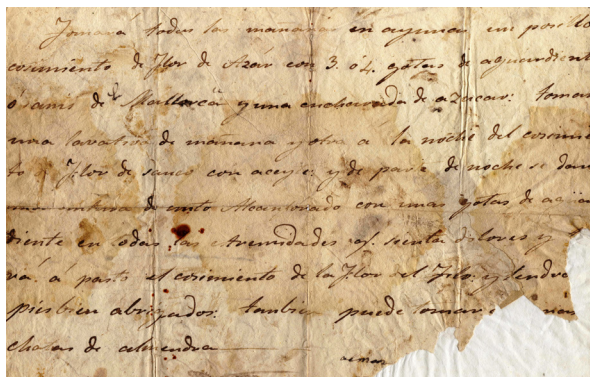 Tomará todas las mañanas en ayunas un posillo
cosimiento de Flor de Azár con 3. ó 4. gotas de aguardient
ó anis de Mallorca y una cucharada de azucar: tomar
una lavativa de mañana y otra a la noche del cosimie
to Flor de sauco con aceyte; y de parte de noche se dará
una untura de unto Alcanforado con unas gotas de agua
diente en todas las extremidades sienta dolores y
rá á pasto el cosimiento de la Flor del Tilo; y tendra
pies bien abrigados: tambien puede tomar
chatas de almendra